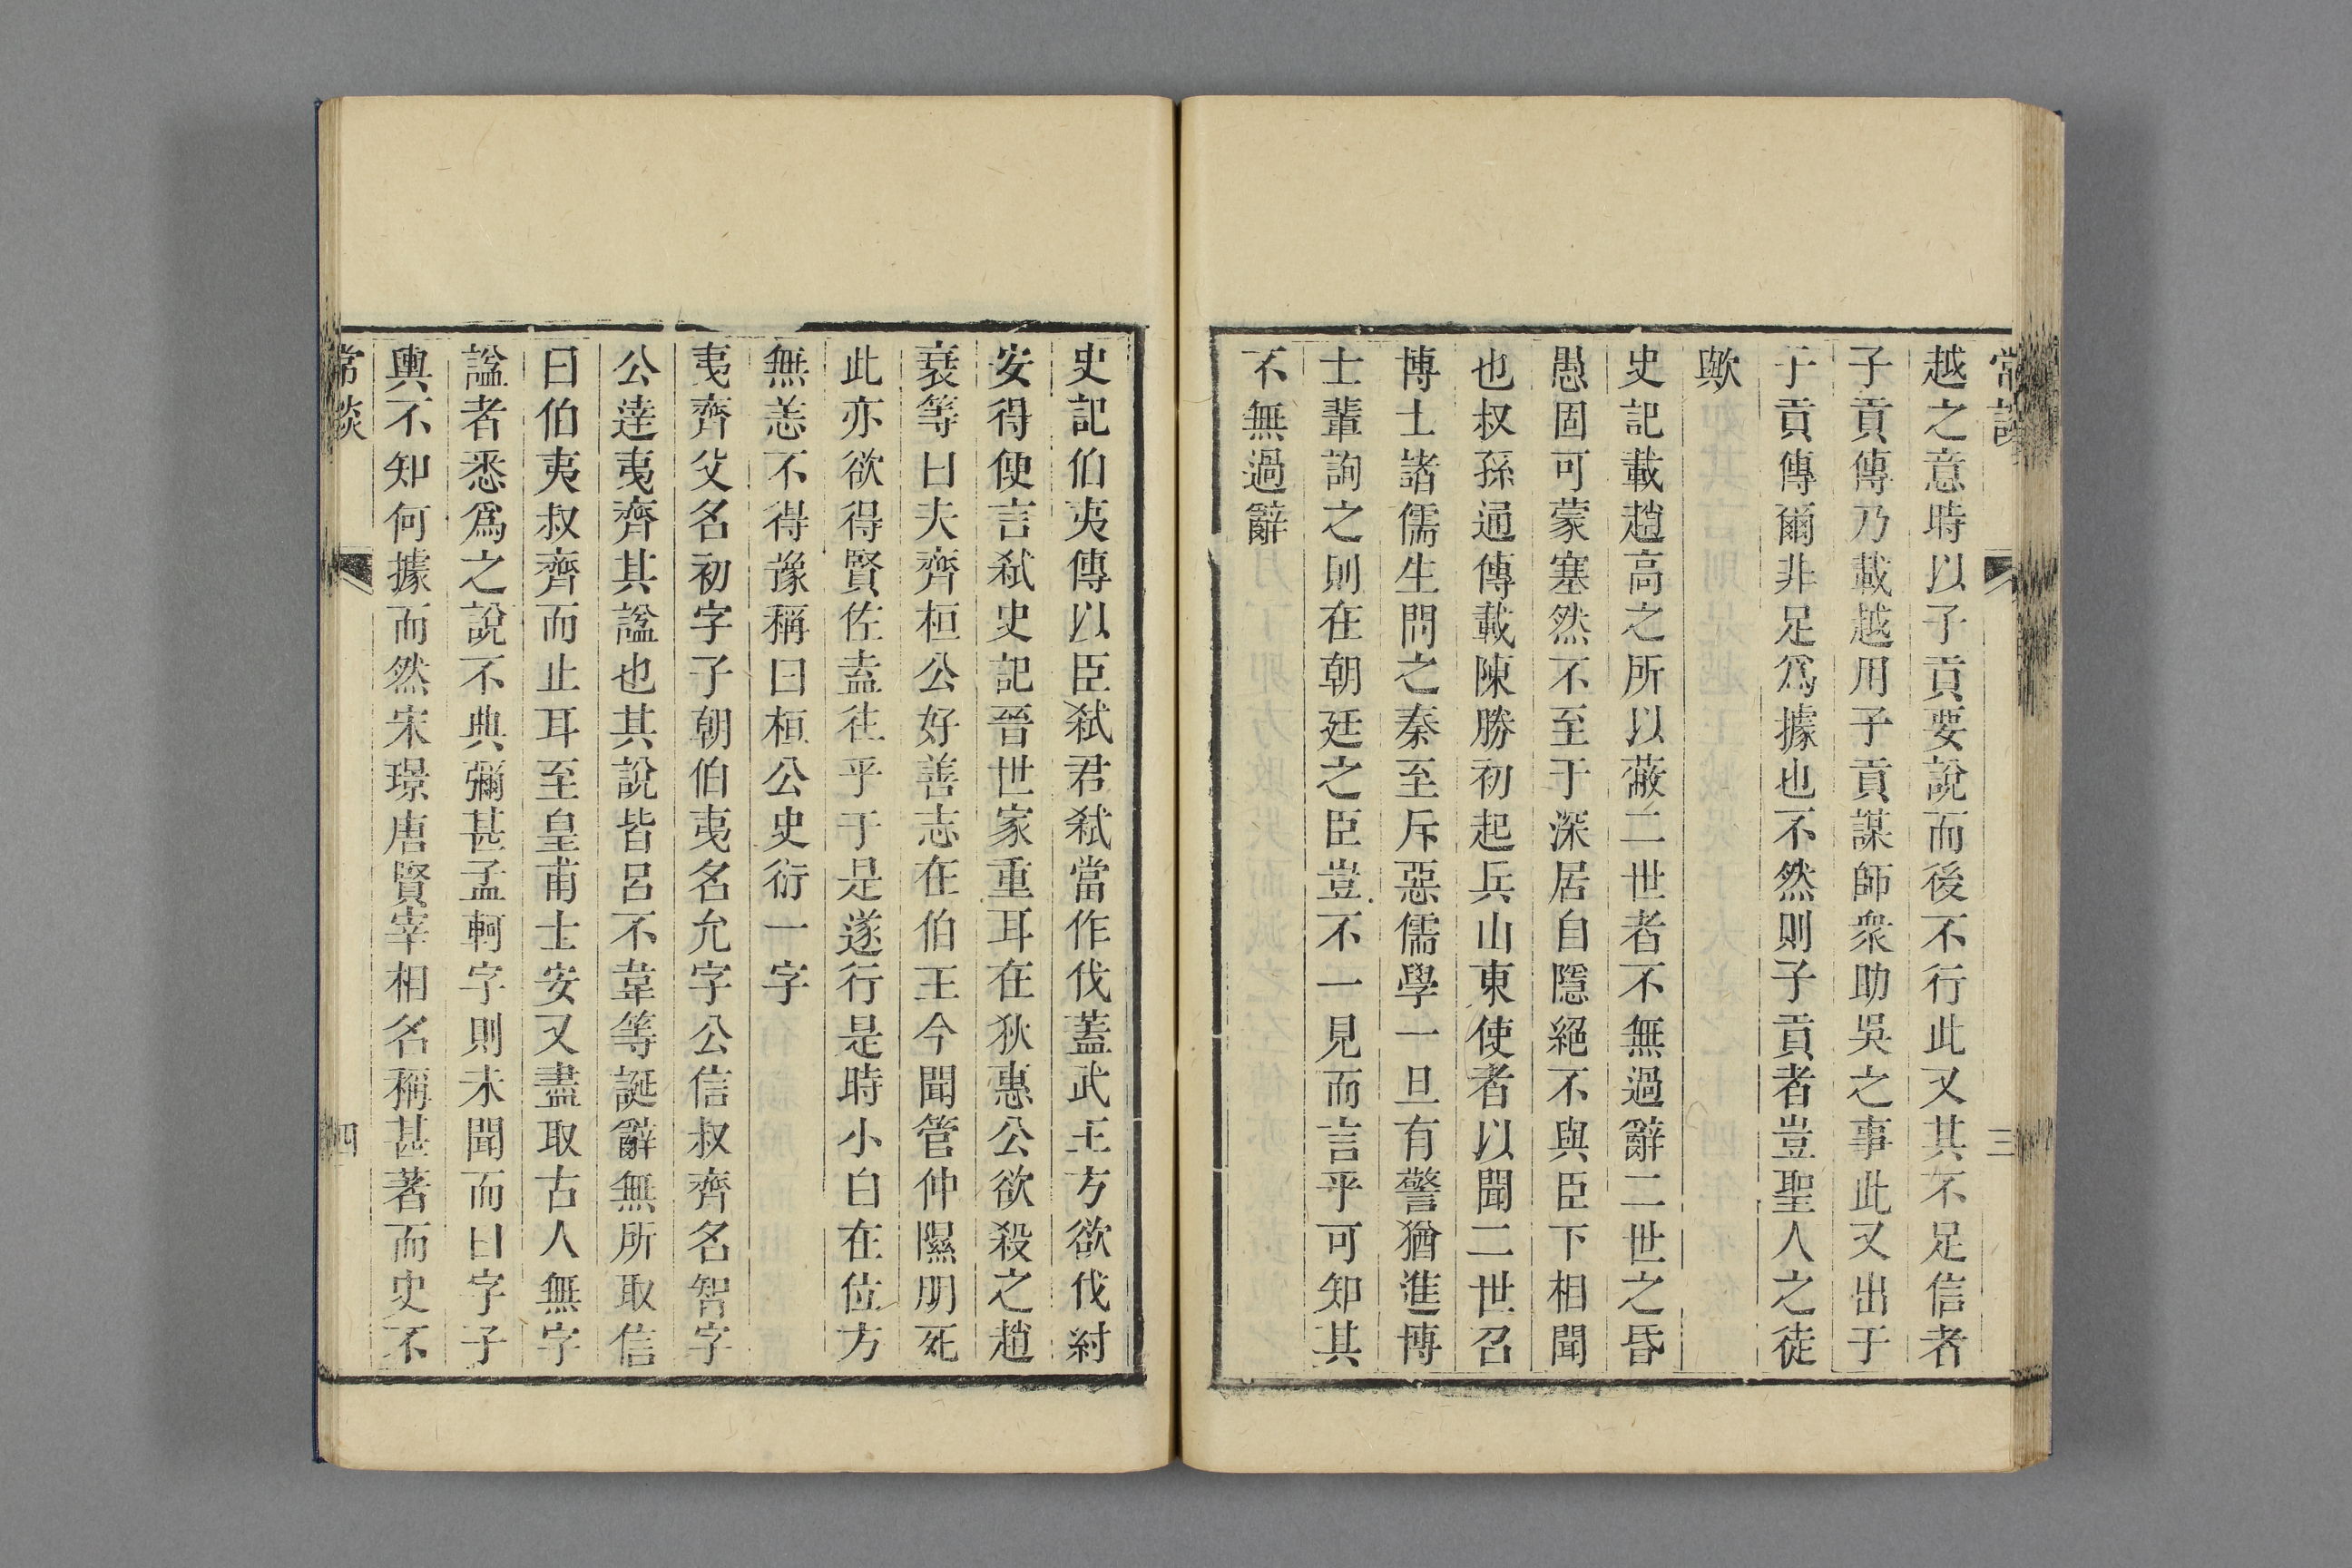 常談
三
越之意時以子貢要說而後不行此又其不足信者
子貢傳乃載越用子貢謀師衆助吳之事此又出于
子貢傳爾非足爲據也不然則子貢者豈聖人之徒
歟
史記載趙高之所以蔽二世者不無過辭二世之昏
愚固可蒙塞然不至于深居自隱絕不與臣下相聞
也叔孫通傳載陳勝初起兵山東使者以聞二世召
博士諸儒生問之秦至斥惡儒學一旦有警猶進博
士輩詢之則在朝廷之臣豈不一見而言乎可知其
不無過辭
史記伯夷傳以臣弒君弒當作伐蓋武王方欲伐紂
安得便言弒史記晉世家重耳在狄惠公欲殺之趙
衰等曰夫齊桓公好善志在伯王今聞管仲隰朋死
此亦欲得賢佐盍往乎于是遂行是時小白在位方
無恙不得豫稱曰桓公史衍一字
夷齊父名初字子朝伯夷名允字公信叔齊名智字
公逹夷齊其諡也其說皆呂不韋等誕辭無所取信
曰伯夷叔齊而止耳至皇甫士安又盡取古人無字
諡者悉爲之說不典彌甚孟軻字則未聞而曰字子
輿不知何據而然宋璟唐賢宰相名稱甚著而史不
常談
四